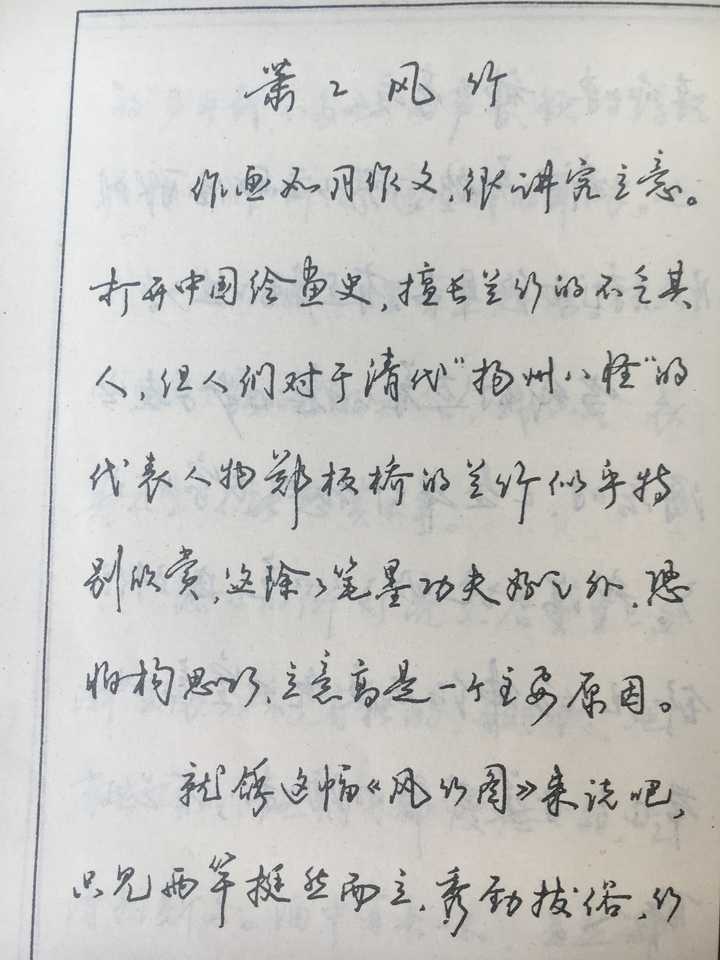 萧々风竹
作画如同作文，很讲究立意。
打开中国绘画史，擅长兰竹的不乏其
人，但人们对于清代“扬州八怪”的
代表人物郑板桥的兰竹似乎特
别欣赏，这除了笔墨功夫好之外，恐
怕构思巧、立意高是一个主要原因。
就拿这幅《风竹图》来说吧，
只见两竿挺然而立，秀劲拔俗，竹